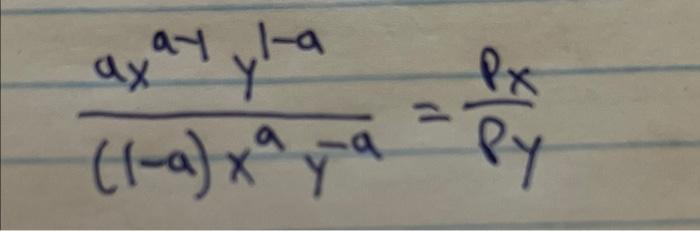 ax^{a-1} y^{1-a} / (1-a) x^a y^{-a} = Px / Py